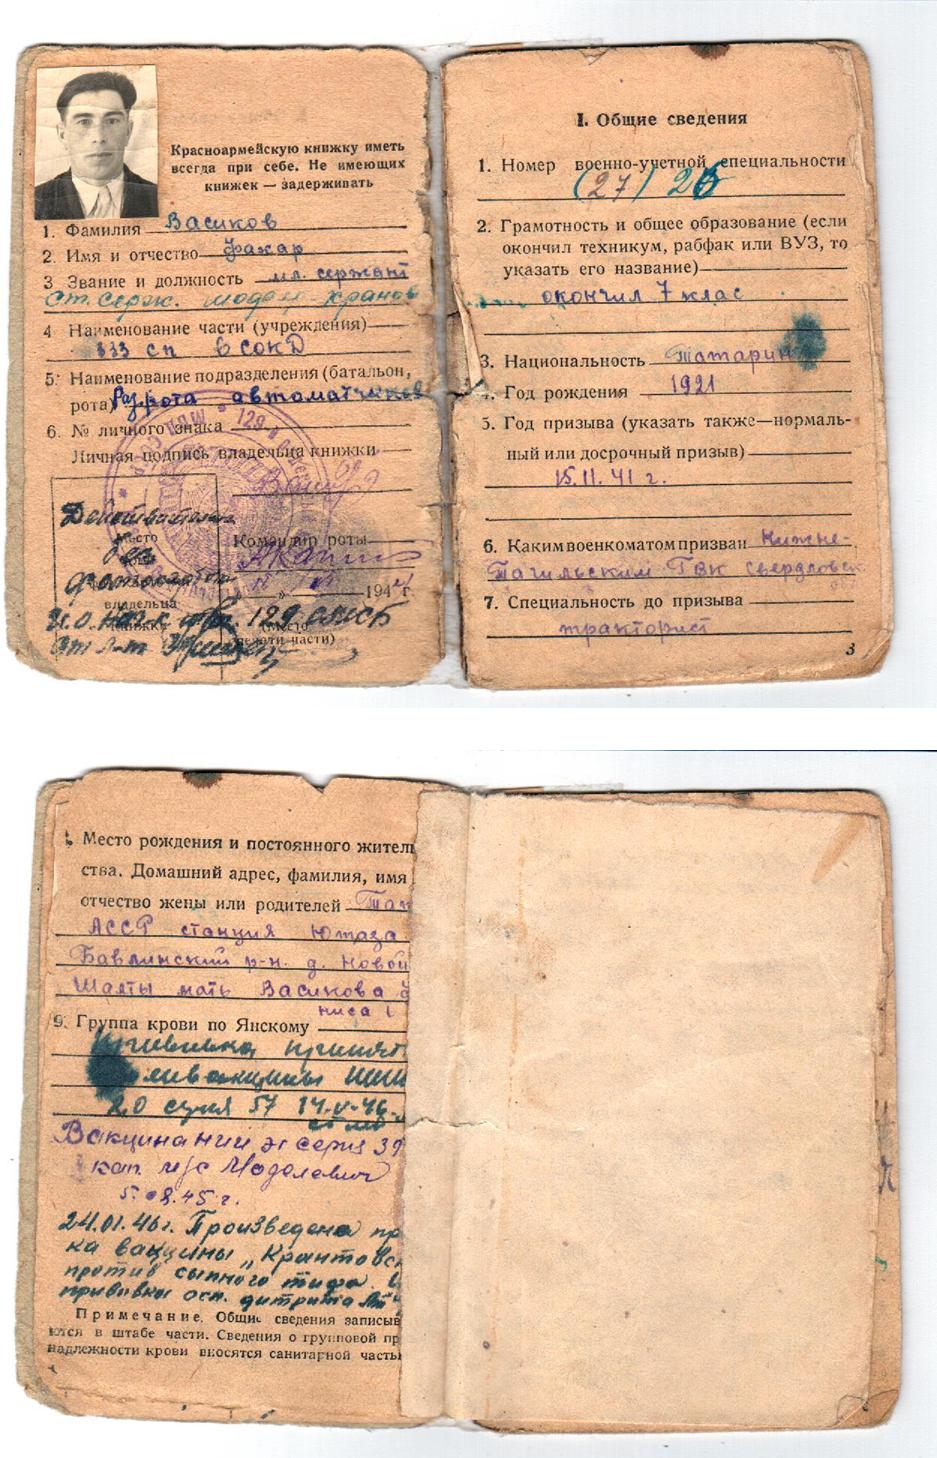 Красноармейскую книжку иметь
всегда при себе. Не имеющих
книжек — задерживать
1. Фамилия Васиков
2. Имя и отчество Фахар
3 Звание и должность мл. сержант
Ст. серж.
4 Наименование части (учреждения)
333 сп 6 СОКД
5. Наименование подразделения (батальон,
рота) рота автоматчиков
6. № личного знака
Личная подпись владельца книжки
Действительно
Место
без
фотокарт
владельца
Командир роты
194 г.
129
(Место
печати части)
I. Общие сведения
1. Номер военно-учетной специальности
(27) 26
2. Грамотность и общее образование (если
окончил техникум, рабфак или ВУЗ, то
указать его название)
окончил 7 клас
3. Национальность Татарин
4. Год рождения 1921
5. Год призыва (указать также—нормаль-
ный или досрочный призыв)
15.11.41 г.
6. Каким военкоматом призван Нижне-
Тагильским ГВК Свердловск
7. Специальность до призыва
тракторист
3
Место рождения и постоянного житель
ства. Домашний адрес, фамилия, имя
отчество жены или родителей Тат
АССР станция Ютаза
Бавлинский р-н. д. Новой
Шалты мать Васикова
ниса
9. Группа крови по Янскому
Прививка принят
поливакцины НИИ
20 серия 57 14-V-46
Вакцина НИИ серия 39
кап. м/с
5.08.45 г.
24.01.46г. Произведена пр
ка вакцины „Крантовск
против сыпного тифа.
прививки осп. дитрита
Примечание. Общие сведения записыв
ются в штабе части. Сведения о групповой пр
надлежности крови вносятся санитарной часть